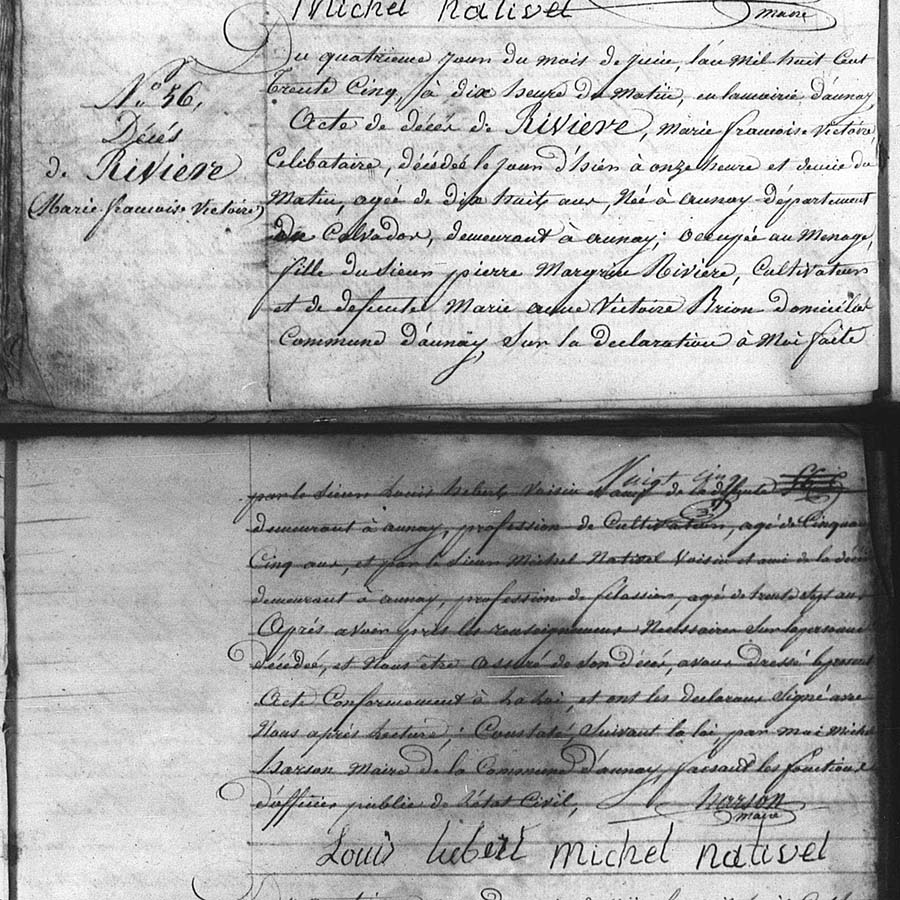 Michel nativel
maire
N.º 56,
Décés
de Rivière
(Marie francoise Victoire)
Du quatrieme jour du mois de juin, l'an mil huit Cent
Trente Cinq, à dix heure du Matin, en la mairie d'aunay,
Acte de décés de Rivière, Marie francoise Victoire
Celibataire, décédée le jour d'hier à onze heure et demie du
Matin, agée de dix huit ans, Née à aunay département
du Calvados, demeurant à aunay; occupée au Menage,
fille du Sieur pierre Margrin Rivière, Cultivateur
et de defunte Marie anne Victoire Brion domicilié
Commune d'aunay, Sur la declaration à Moi faite
Vingt cinq
par le Sieur Louis hebert Voisin et ami de la défunte
demeurant à aunay, profession de Cultivateur, agé de Cinquante
Cinq ans, et par le Sieur Michel Nativel Voisin et ami de la
demeurant à aunay, profession de filassier, agé de trente Sept ans
Après avoir pris les renseignemens Nécessaires Sur la personne
décédée, et Nous être assuré de Son décés, avons dressé le present
Acte Conformement à La Loi, et ont les declarans Signé avec
Nous après Lecture; Constaté, Suivant la loi par moi Michel
Harson Maire de la Commune d'aunay, faisant les fonctions
d'officier public de L'état Civil,
harson
maire
Louis hebert Michel nativel